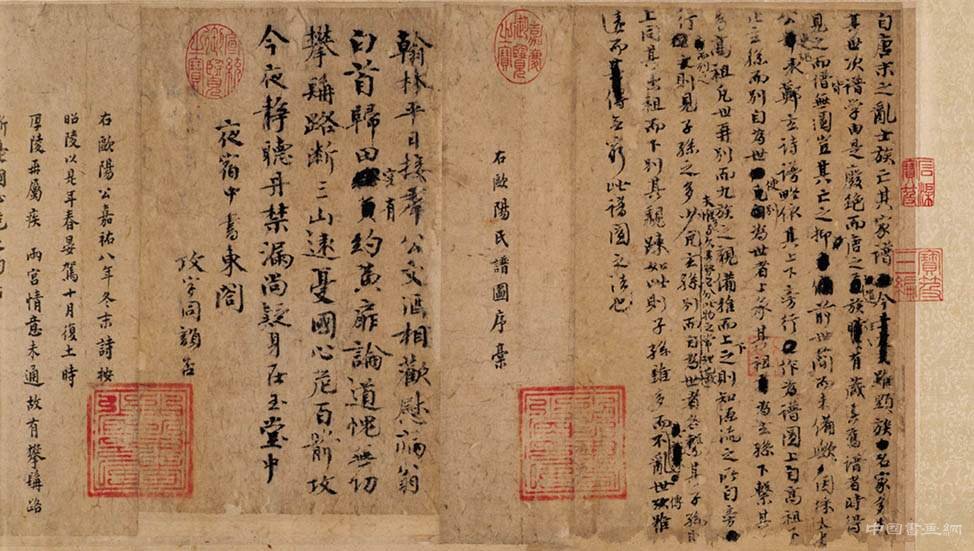 自唐末之亂士族亡其家譜今雖顯族名家多
其世次譜學由是廢絕而唐之遺族時有藏其舊譜者時得
見之而譜無圖豈其亡之抑前世簡而未備歟因採太史
公史記表鄭玄詩譜略依其上下旁行作為譜圖上自高祖下
止玄孫而別自為世使別為世者上承其祖為玄孫下繫其
孫為高祖凡世再別而九族之親備推而上之則知源流之所自旁
行而列之則見子孫之多少夫惟多與久其勢必分此物之常理也凡玄孫別而自為世者各繫其子孫則
上同其出祖而下別其親疎如此則子孫雖多而不亂世傳雖
遠而無窮此譜圖之法也
右歐陽氏譜圖序稾
翰林平日接羣公文酒相歡慰病翁
白首歸田空有約黃扉論道愧無功
攀髯路斷三山遠憂國心危百箭攻
今夜靜聽丹禁漏尚疑身在玉堂中
夜宿中書東閣
攻字同韻否
右歐陽公嘉祐八年冬末詩按
昭陵以是年春晏駕十月復土時
厚陵再屬疾 兩宮情意未通故有攀髯路
嘉慶御覽之寶
宣統御覽之寶
中国書画網